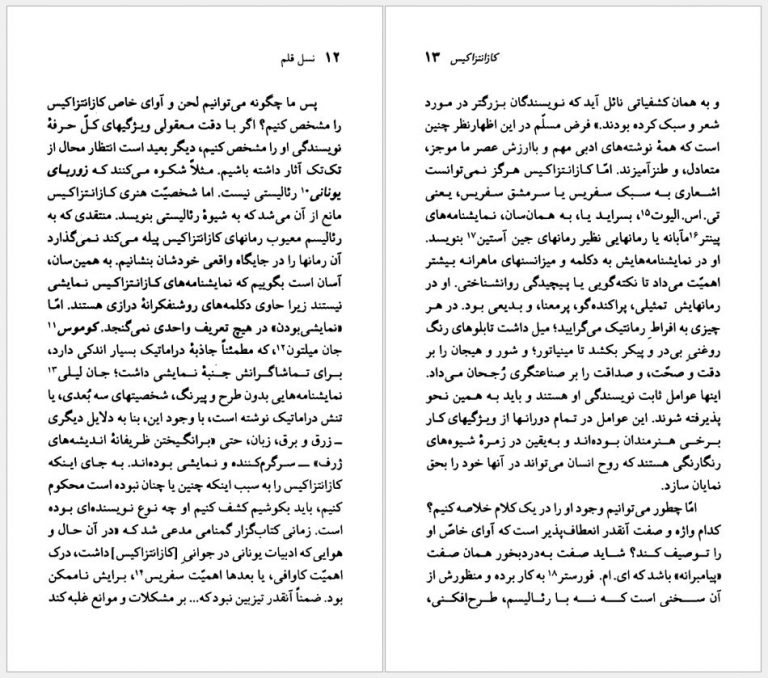 ۱۲ نسل قلم
پس ما چگونه می‌توانیم لحن و آوای خاص کازانتزاکیس
را مشخص کنیم؟ اگر با دقت معقولی ویژگیهای کلّ حرفهٔ
نویسندگی او را مشخص کنیم، دیگر بعید است انتظار محال از
تک‌تک آثار داشته باشیم. مثلاً شکوه می‌کنند که زوربای
یونانی۱۰ رئالیستی نیست. اما شخصیّت هنری کازانتزاکیس
مانع از آن می‌شد که به شیوهٔ رئالیستی بنویسد. منتقدی که به
رئالیسم معیوب رمانهای کازانتزاکیس پیله می‌کند نمی‌گذارد
آن رمانها را در جایگاه واقعی خودشان بنشانیم. به همین‌سان،
آسان است بگوییم که نمایشنامه‌های کازانتزاکیس نمایشی
نیستند زیرا حاوی دکلمه‌های روشنفکرانهٔ درازی هستند. امّا
«نمایشی‌بودن» در هیچ تعریف واحدی نمی‌گنجد. کوموس۱۱
جان میلتون۱۲، که مطمئناً جاذبهٔ دراماتیک بسیار اندکی دارد،
برای تماشاگرانش جَنبهٔ نمایشی داشت؛ جان لیلی۱۳
نمایشنامه‌هایی بدون طرح و پیرنگ، شخصیتهای سه بُعدی، یا
تنش دراماتیک نوشته است، با وجود این، بنا به دلایل دیگری
ــ زرق و برق، زبان، حتی «برانگیختن ظریفانهٔ اندیشه‌های
ژرف» ــ سرگرم‌کننده و نمایشی بوده‌اند. به جای اینکه
کازانتزاکیس را به سبب اینکه چنین یا چنان نبوده است محکوم
کنیم، باید بکوشیم کشف کنیم او چه نوع نویسنده‌ای بوده
است. زمانی کتاب‌گزار گمنامی مدعی شد که «در آن حال و
هوایی که ادبیات یونانی در جوانیِ [کازانتزاکیس] داشت، درک
اهمیّت کاوافی، یا بعدها اهمیّت سفریس۱۴، برایش ناممکن
بود. ضمناً آنقدر تیزبین نبود که... بر مشکلات و موانع غلبه کند
کازانتزاکیس ۱۳
و به همان کشفیاتی نائل آید که نویسندگان بزرگتر در مورد
شعر و سبک کرده بودند.» فرض مسلّم در این اظهارنظر چنین
است که همهٔ نوشته‌های ادبی مهم و باارزش عصر ما موجز،
متعادل، و طنزآمیزند. امّا کازانتزاکیس هرگز نمی‌توانست
اشعاری به سبک سفریس یا سرمشق سفریس، یعنی
تی. اس. الیوت۱۵، بسراید یا، به همان‌سان، نمایشنامه‌های
پینتر۱۶مآبانه یا رمانهایی نظیر رمانهای جین آستین۱۷ بنویسد.
او در نمایشنامه‌هایش به دکلمه و میزانسنهای ماهرانه بیشتر
اهمیّت می‌داد تا نکته‌گویی یا پیچیدگی روانشناختی. او در
رمانهایش تمثیلی، پراکنده‌گو، پرمعنا، و بدیعی بود. در هر
چیزی به افراطِ رمانتیک می‌گرایید؛ میل داشت تابلوهای رنگ
روغنیِ بی‌در و پیکر بکشد تا مینیاتور؛ و شور و هیجان را بر
دقت و صحّت، و صداقت را بر صناعتگری رُجحان می‌داد.
اینها عوامل ثابت نویسندگی او هستند و باید به همین نحو
پذیرفته شوند. این عوامل در تمام دورانها از ویژگیهای کار
برخی هنرمندان بوده‌اند و به‌یقین در زمرهٔ شیوه‌های
رنگارنگی هستند که روح انسان می‌تواند در آنها خود را بحق
نمایان سازد.
امّا چطور می‌توانیم وجود او را در یک کلام خلاصه کنیم؟
کدام واژه و صفت آنقدر انعطاف‌پذیر است که آوای خاصّ او
را توصیف کند؟ شاید صفت به‌دردبخور همان صفت
«پیامبرانه» باشد که ای. ام. فورستر۱۸ به کار برده و منظورش از
آن سخنی است که نه با رئالیسم، طرح‌افکنی،